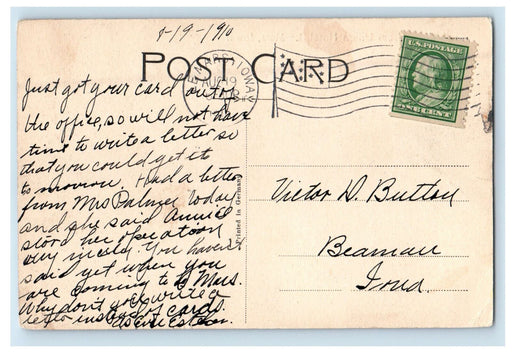 8-19-1910
POST CARD
IOWA
AUG 19
U.S. POSTAGE
ONE CENT
Just got your card out of
the office, so will not have
time to write a letter so
that you could get it
to morrow. Had a letter
from Mrs Palmer today
and she said
store her operation
very nicely. You haven't
said yet when you
are coming to Mars.
Why don't you write a
letter instead of cards.
Printed in Germany
Victor D. Button
Beaman
Iowa.